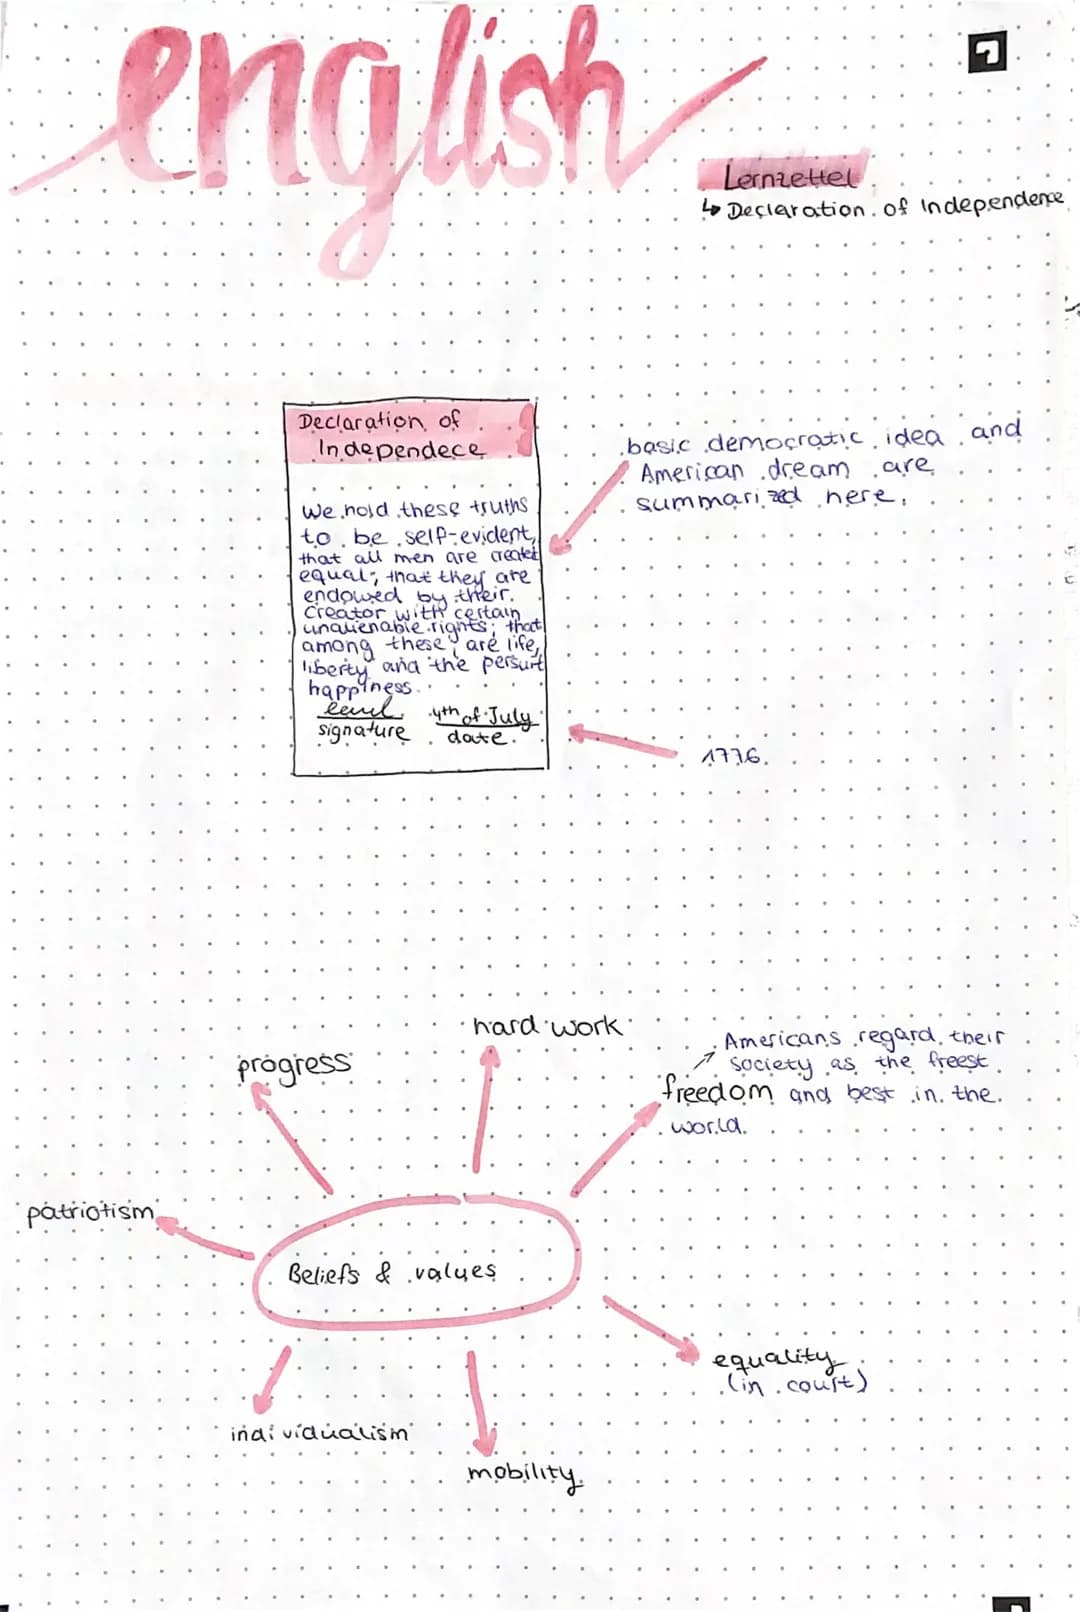 english
Lernzettel
↳ Declaration of Independence
Declaration of
Independece
basic democratic idea and
American dream are
summarized here.
We hold these truths
to be self-evident,
that all men are created
equal; that they are
endowed by their
Creator with certain
unalienable rights; that
among these, are life,
liberty and the persuit
happiness.
4th of July
signature
date
1776.
hard work
progress
Americans regard their
society as the freest
freedom and best in the
world.
patriotism
Beliefs & values
equality
(in court)
individualism
mobility